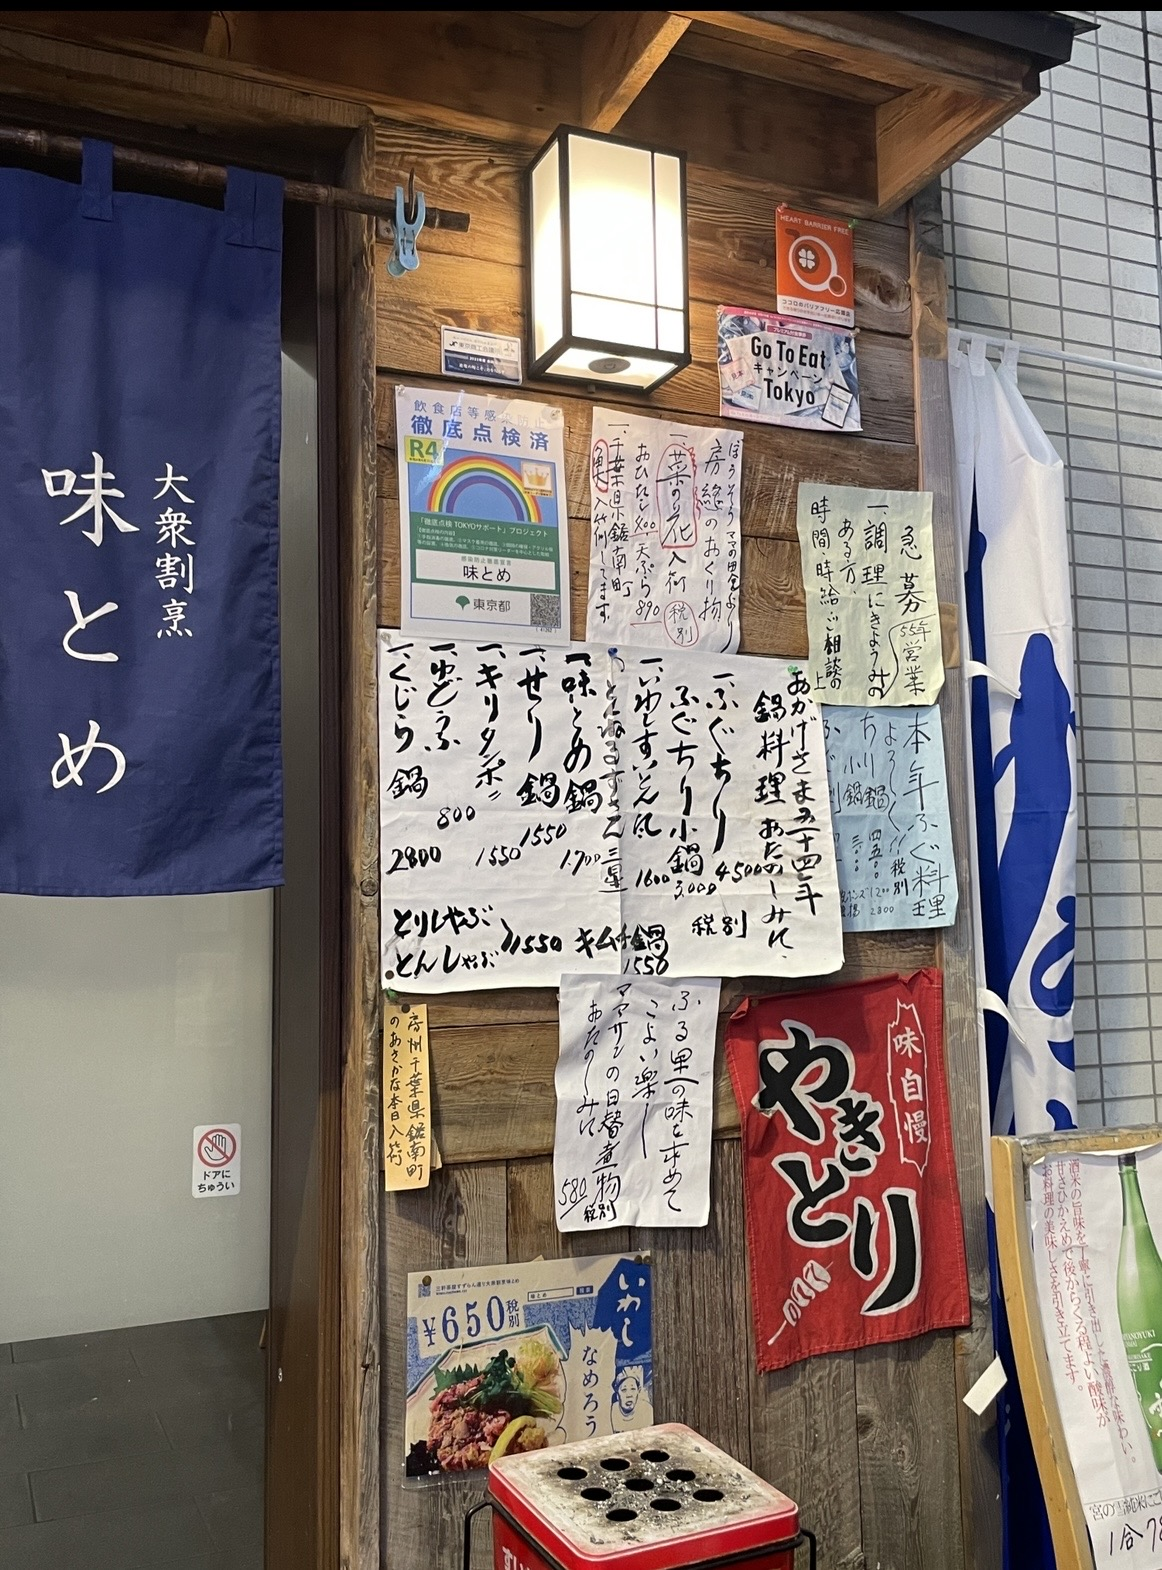 大衆割烹
味とめ
HEART BARRIER FREE
ココロのバリアフリー応援店
プレミアム付食事券
Go To Eat
キャンペーン
Tokyo
東京商工会議所
飲食店等感染防止
徹底点検済
R4
「徹底点検 TOKYOサポート」プロジェクト
感染防止徹底宣言
味とめ
東京都
ぼうそう ママの田舎より
房総のおくり物
一、菜の花入荷 税別
おひたし 天ぷら 890
一、千葉県鋸南町
魚入荷します
急募 55年営業
一、調理にきょうみの
ある方、
時間時給ご相談の上
おかげさま五十四年
鍋料理 おたのしみに、
一、ふぐちり 4500
税別
ふぐちり小鍋 3,000
一、いわしすいとん風 1600
一、味とめ鍋 1,700
一、せり鍋 1550
一、キリタンポ 1550
一、ゆどうふ 800
一、くじら鍋 2800
キムチ鍋 1550
とりしゃぶ
とんしゃぶ
1550
本年ふぐ料理
よろしく!! 税別
ちり鍋 四五〇〇
小鍋
房州千葉県鋸南町
のあさかな本日入荷
ふる里の味を求めて
こよい楽し
ママサンの日替煮物
おたのしみに 580 税別
味自慢
やきとり
ドアに
ちゅうい
三軒茶屋すずらん通り大衆割烹味とめ
味とめ 検索
¥650税別
いわし
なめろう
酒米の旨味を丁寧に引き出した濃醇な味わい。
甘さひかえめで後からくる程よい酸味が
お料理の美味しさを引き立てます。
1合